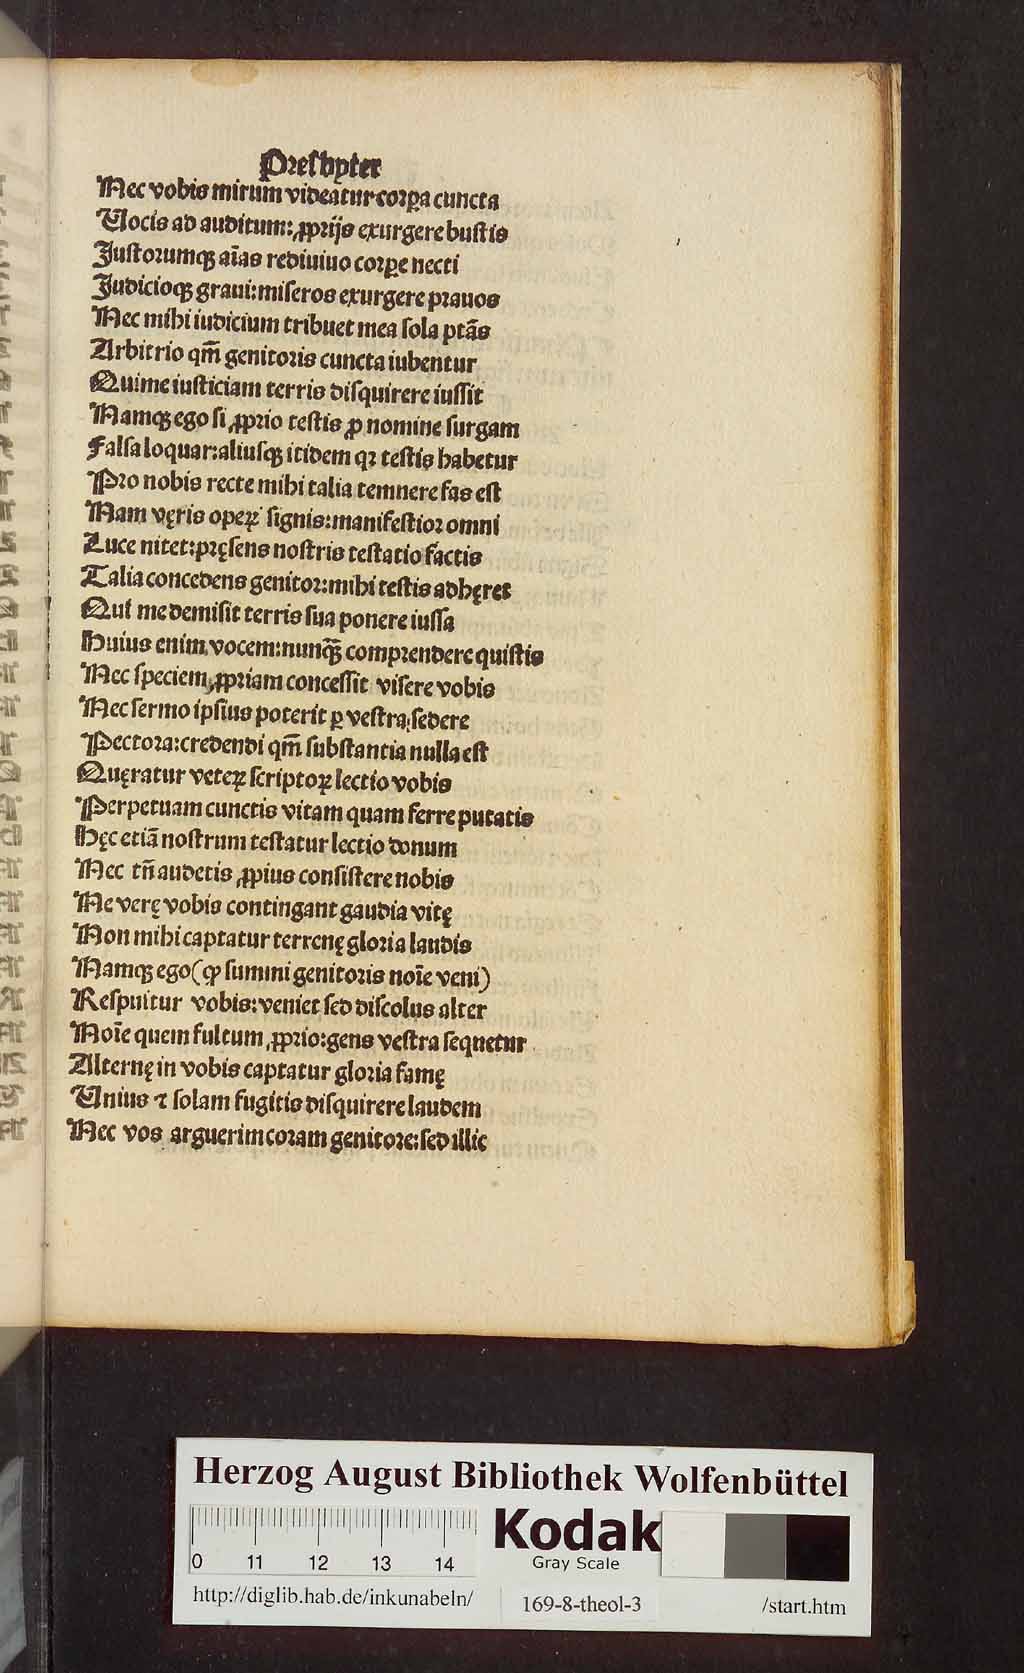 Presbyter
Nec vobis mirum videatur corꝑa cuncta
Uocis ad auditum: ꝓprijs exurgere bustis
Justorumqꝫ aīas rediuiuo corꝑe necti
Judicioqꝫ graui: miseros exurgere prauos
Nec mihi iudicium tribuet mea sola ptās
Arbitrio qm̄ genitoris cuncta iubentur
Qui me iusticiam terris disquirere iussit
Namqꝫ ego si ꝓprio testis ꝓ nomine surgam
Falsa loquar: aliusqꝫ itidem qꝛ testis habetur
Pro nobis recte mihi talia temnere fas est
Nam vęris operꝝ signis: manifestior omni
Luce nitet: pręsens nostris testatio factis
Talia concedens genitor: mihi testis adhęret
Qui me demisit terris sua ponere iussa
Huius enim vocem: nunqꝫ̄ comprendere quistis
Nec speciem ꝓpriam concessit visere vobis
Nec sermo ipsius poterit ꝑ vestra sedere
Pectora: credendi qm̄ substantia nulla est
Quęratur veteꝝ scriptoꝝ lectio vobis
Perpetuam cunctis vitam quam ferre putatis
Hęc etiā nostrum testatur lectio donum
Nec tn̄ audetis ꝓpius consistere nobis
Ne verę vobis contingant gaudia vitę
Non mihi captatur terrenę gloria laudis
Namqꝫ ego (ꝙ summi genitoris noīe veni)
Respuitur vobis: veniet sed discolus alter
Noīe quem fultum ꝓprio: gens vestra sequetur
Alternę in vobis captatur gloria famę
Unius ⁊ solam fugitis disquirere laudem
Nec vos arguerim coram genitore: sed illic
Herzog August Bibliothek Wolfenbüttel
0 11 12 13 14
Kodak
Gray Scale
http://diglib.hab.de/inkunabeln/ 169-8-theol-3 /start.htm